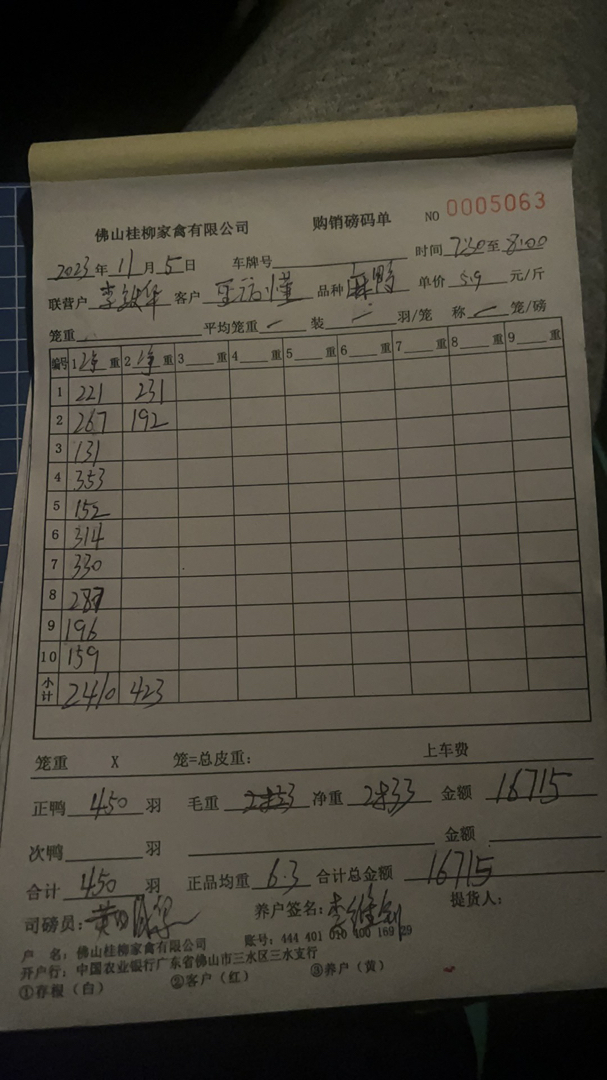 佛山桂柳家禽有限公司 购销磅码单 NO 0005063
2023年11月5日 车牌号 时间 7:30至8:00
联营户 客户 品种 麻鸭 单价 5.9 元/斤
笼重 平均笼重 一 装 一 羽/笼 称 一 笼/磅
编号 1 净 重 2 净 重 3 重 4 重 5 重 6 重 7 重 8 重 9 重
1 221 231
2 267 192
3 131
4 353
5 152
6 314
7 330
8 287
9 196
10 159
小计 2410 423
笼重 X 笼=总皮重: 上车费
正鸭 450 羽 毛重 净重 2833 金额 16715
次鸭 羽 金额
合计 450 羽 正品均重 6.3 合计总金额 16715
司磅员: 养户签名: 提货人:
户 名: 佛山桂柳家禽有限公司 账号: 444 401 010 400 169 29
开户行: 中国农业银行广东省佛山市三水区三水支行
①存根(白) ②客户(红) ③养户(黄)